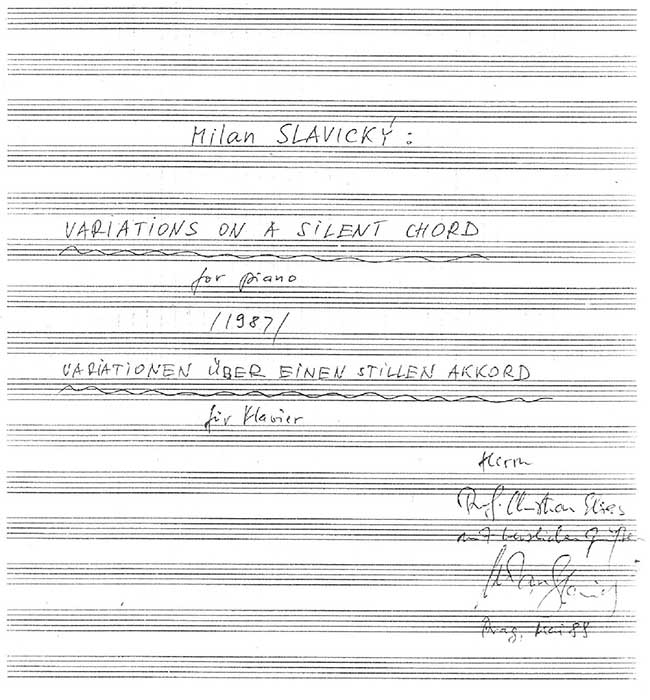 Milan SLAVICKÝ:
VARIATIONS ON A SILENT CHORD
for piano
/1987/
VARIATIONEN ÜBER EINEN STILLEN AKKORD
für Klavier
Herrn
Prof. Christian
mit herzlichen Grüßen
Milan Slavický
Prag, Mai 88